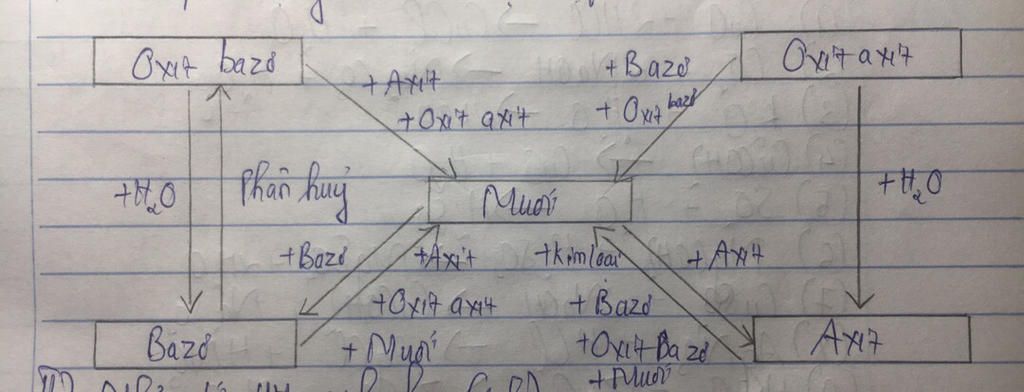 Oxit bazơ
Oxit axit
+ Axit
+ Bazơ
+ Oxit axit
+ Oxit bazơ
+ H₂O
Phân huỷ
Muối
+ H₂O
+ Bazơ
+ Axit
+ kim loai
+ Axit
+ Oxit axit
+ Bazơ
Bazơ
+ Muối
+ Oxit Bazơ
Axit
+ Muối